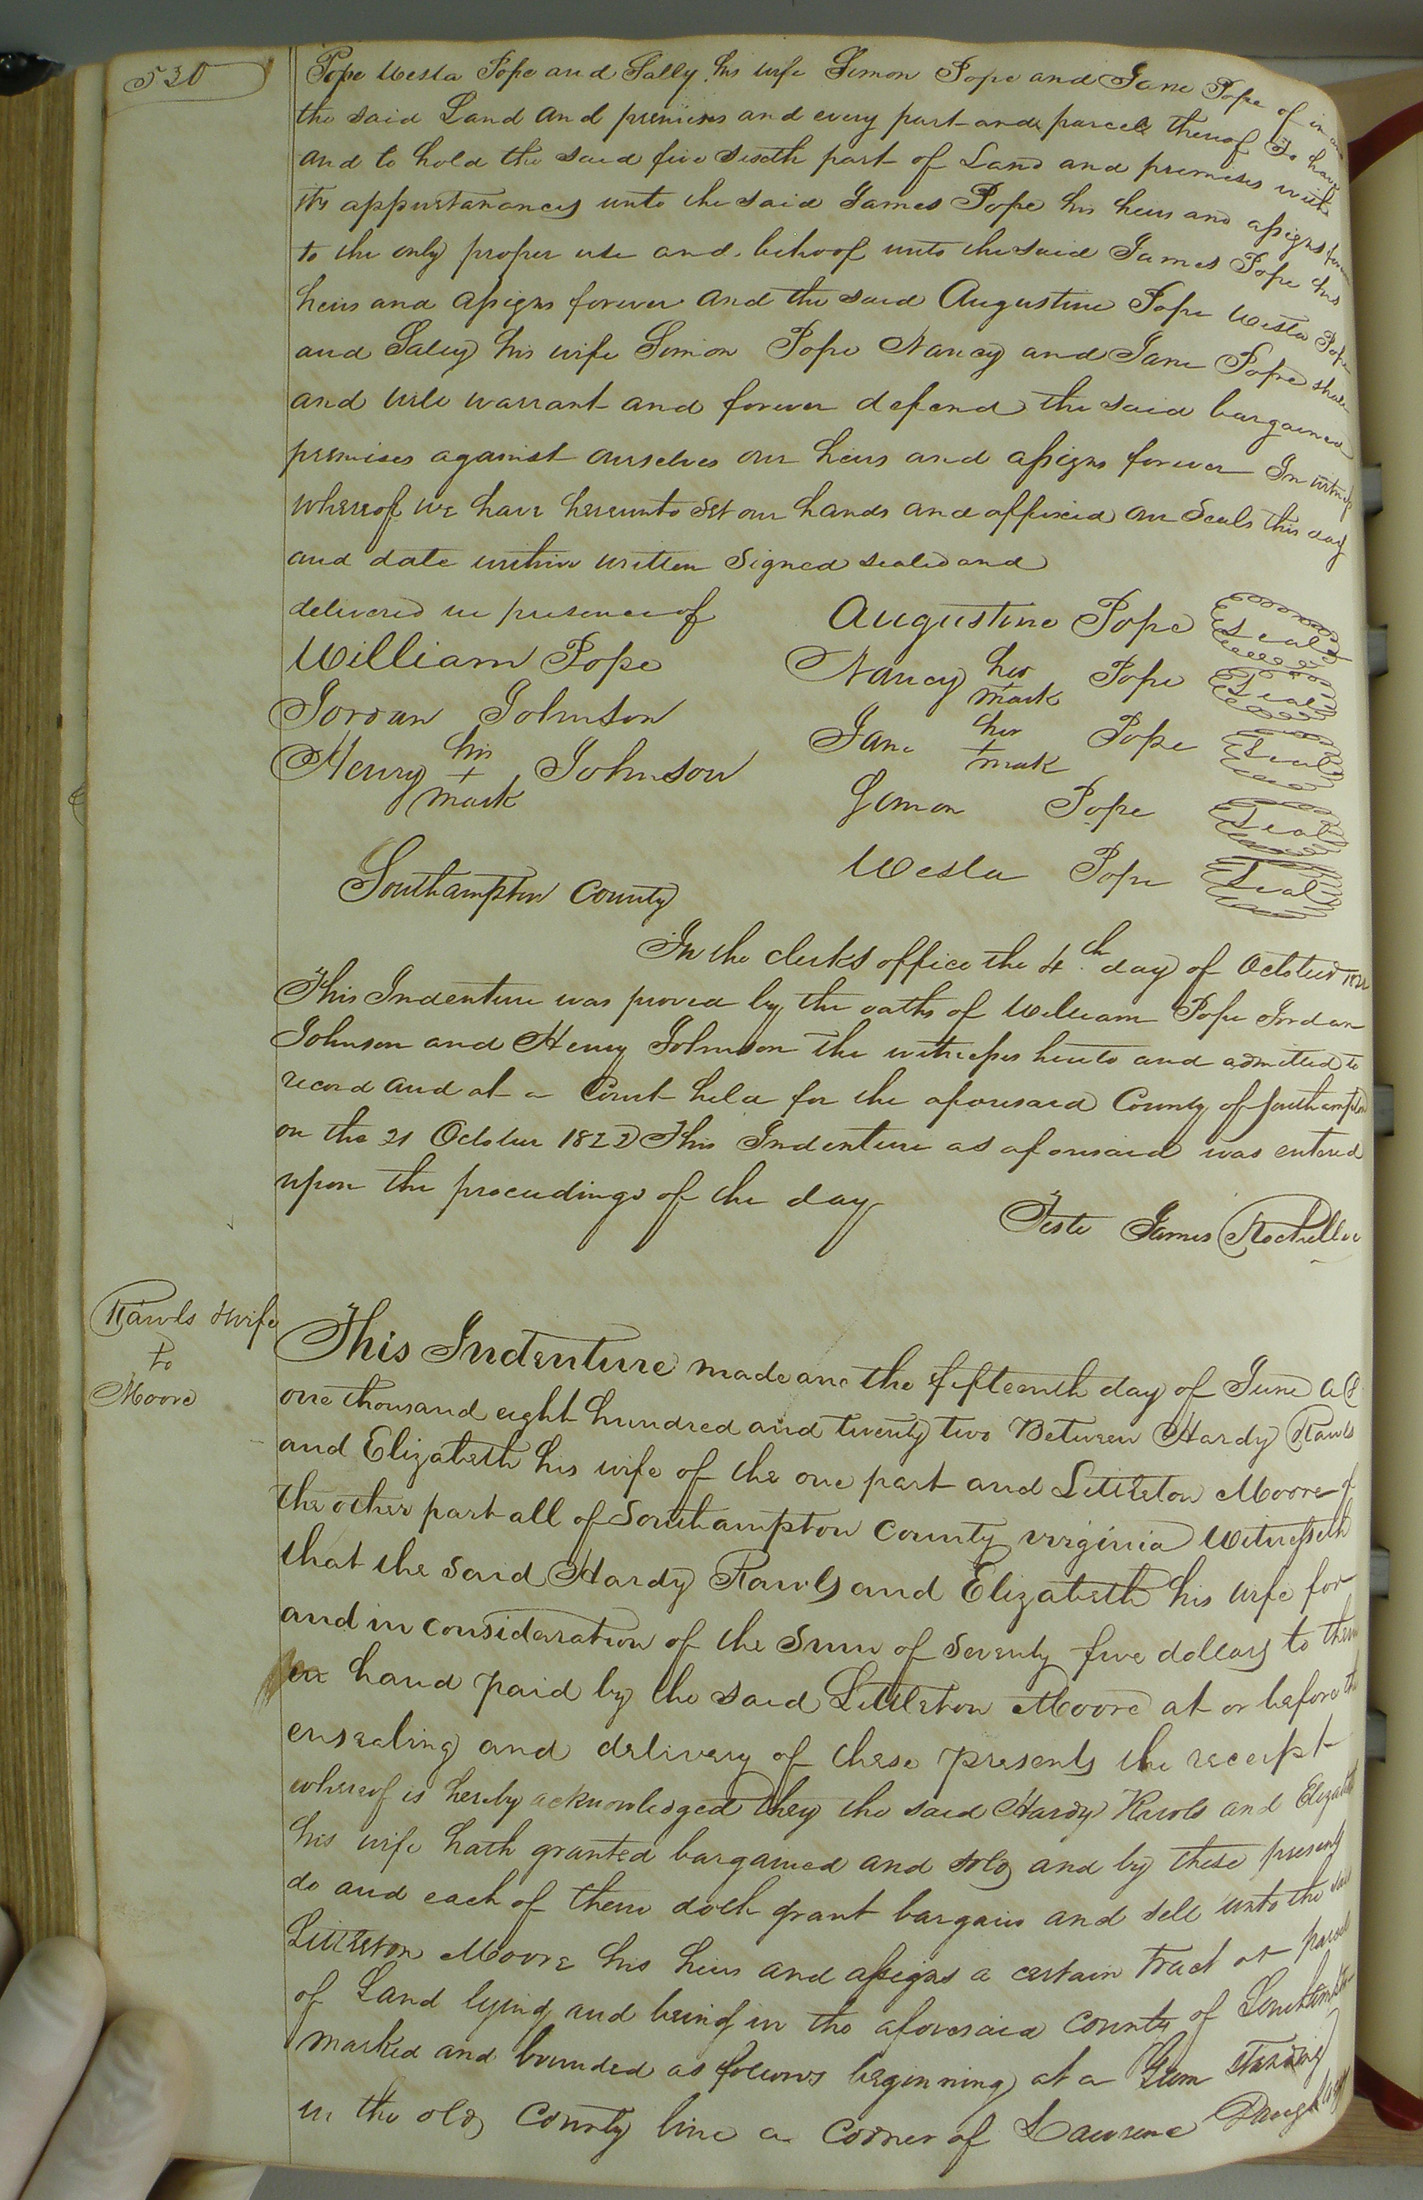 530
Pope Wesla Pope and Sally his wife Simon Pope and Jane Pope of in
the said Land and premises and every part and parcel thereof To have
and to hold the said five sixth part of Land and premises with
its appurtanances unto the said James Pope his heirs and assigns
to the only proper use and behoof unto the said James Pope his
heirs and assigns forever and the said Augustine Pope Wesla Pope
and Salley his wife Simon Pope Nancy and Jane Pope shall
and will warrant and forever defend the said bargained
premises against ourselves our heirs and assigns forever In witness
whereof we have hereunto set our hands and affixed our Seals this day
and date within written Signed sealed and
delivered in presence of
Augustine Pope Seal
William Pope
Nancy her + mark Pope Seal
Jordan Johnson
Jane her + mark Pope Seal
Henry his + mark Johnson
Simon Pope Seal
Wesla Pope Seal
Southampton County
In the clerks office the 4th day of October 1822
This Indenture was proved by the oaths of William Pope Jordan
Johnson and Henry Johnson the witnesses hereto and admitted to
record and at a Court held for the aforesaid County of Southampton
on the 21 October 1822 This Indenture as aforesaid was entered
upon the proceedings of the day
Teste James Rochelle
Rawls & wife
to
Moore
This Indenture made the fifteenth day of June
one thousand eight hundred and twenty two Between Hardy Rawls
and Elizabeth his wife of the one part and Littleton Moore of
the other part all of Southampton County virginia Witnesseth
that the said Hardy Rawls and Elizabeth his wife for
and in consideration of the Sum of Seventy five dollars to them
in hand paid by the said Littleton Moore at or before the
ensealing and delivery of these presents the receipt
whereof is hereby acknowledged they the said Hardy Rawls and Elizabeth
his wife hath granted bargained and sold and by these presents
do and each of them doth grant bargain and sell unto the said
Littleton Moore his heirs and assigns a certain tract or parcel
of Land lying and being in the aforesaid county of Southampton
marked and bounded as follows beginning at a Gum standing
in the old County line a corner of Lawrence